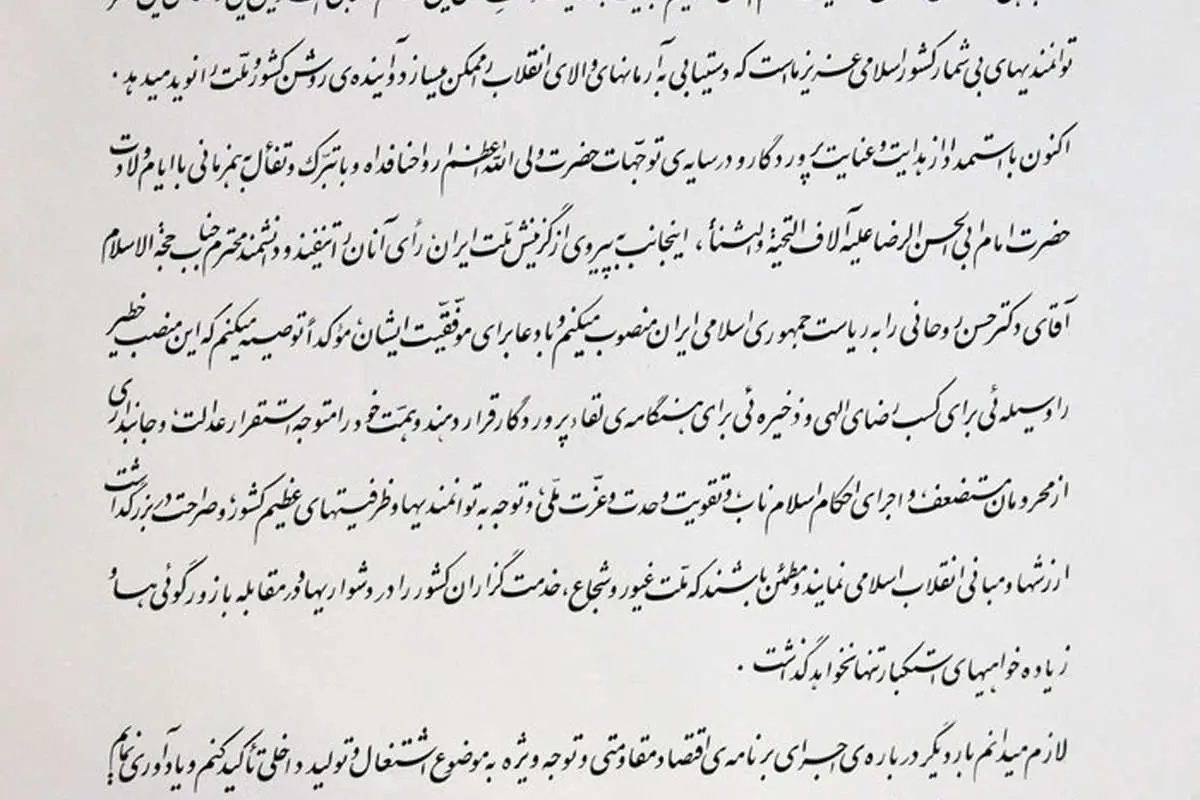 توانمندیهای بی‌شمار کشور اسلامی عزیز ما است که دستیابی به آرمانهای والای انقلاب را ممکن میسازد و آینده‌ی روشن کشور و ملّت را نوید میدهد.
اکنون با استمداد از هدایت و عنایت پروردگار و در سایه‌ی توجّهات حضرت ولی الله الاعظم ارواحنا فداه و با تبرّک و تفأل به همزمانی با ایام ولادت
حضرت امام ابی الحسن الرضا علیه آلاف التحیة والثناء، اینجانب به پیروی از گزینش ملّت ایران رأی آنان را تنفیذ و دانشمند محترم جناب حجةالاسلام
آقای دکتر حسن روحانی را به ریاست جمهوری اسلامی ایران منصوب میکنم و با دعا برای موفّقیّت ایشان، مؤکداً توصیه میکنم که این منصب خطیر
را وسیله‌ئی برای کسب رضای الهی و ذخیره‌ئی برای هنگامه‌ی لقاء پروردگار قرار دهند و همّت خود را متوجه استقرار عدالت، و جانبداری
از محرومان مستضعف، و اجرای احکام اسلام ناب، و تقویت وحدت و عزّت ملّی، و توجه به توانمندیها و ظرفیتهای عظیم کشور، و صراحت در بزرگداشت
ارزشها و مبانی انقلاب اسلامی نمایند و مطمئن باشند که ملّت غیور و شجاع، خدمت گزاران کشور را در دشواریها و در مقابله با زورگوئی‌ها و
زیاده خواهیهای استکبار تنها نخواهد گذاشت.
لازم میدانم بار دیگر درباره‌ی اجرای برنامه‌ی اقتصاد مقاومتی و توجه ویژه به موضوع اشتغال و تولید داخلی تأکید کنم و یادآوری نمایم